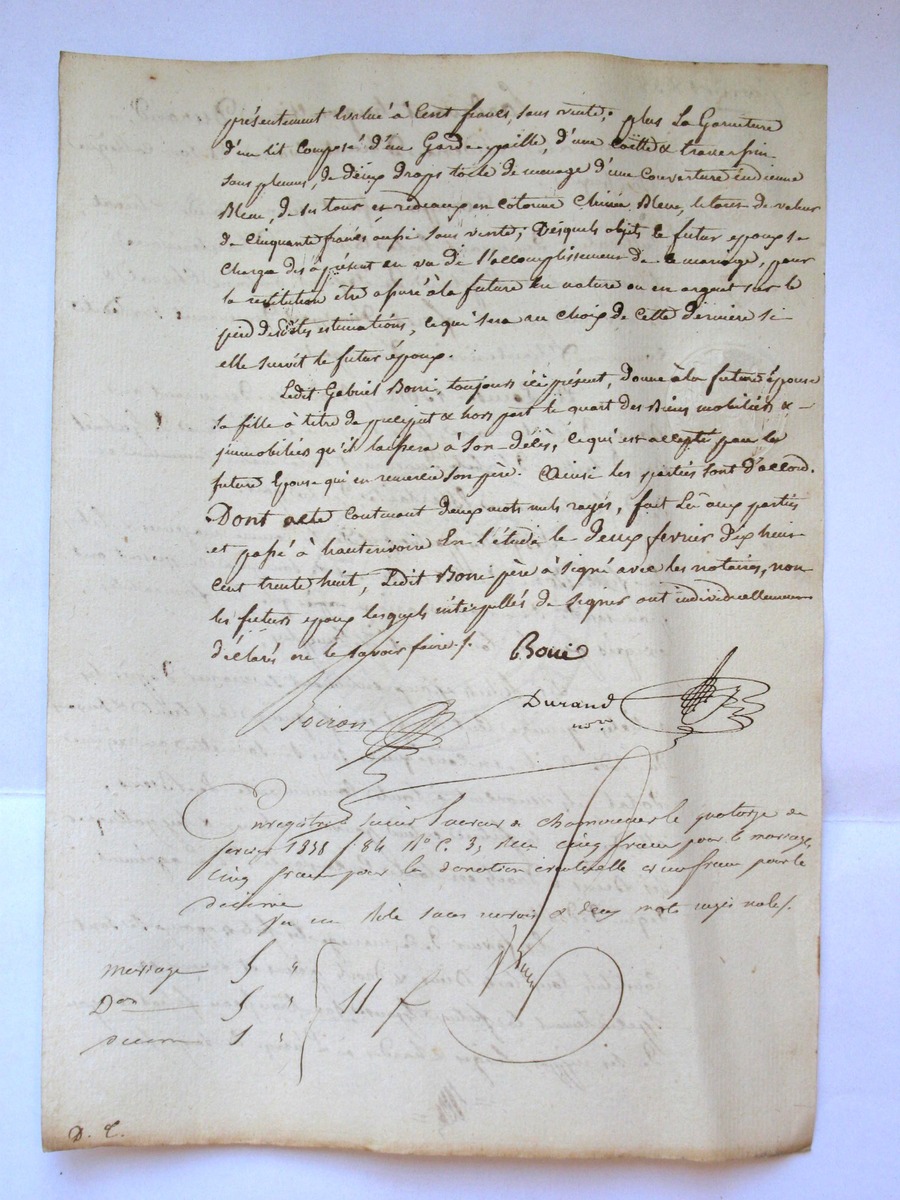 présentement Évalué à Cent francs, sans vente; plus La Garniture
d'un lit Composé d'un Garde-paille, d'une Coëtte & traversin
sans plumes, de deux draps toile de menage d'une Couverture indienne
Bleue, de ses tour et rideaux en cotonne Chinée Bleue, le tout de valeur
de Cinquante francs aussi sans vente; Desquels objets le futur epoux se
Charge dès à présent en vû de l'accomplissement de ce mariage, pour
la restitution être assuré à la future En nature ou en argent sur le
pied desdites estimations, ce qui sera au choix de cette dernière si
elle survit le futur époux.
Ledit Gabriel Borri toujours ici présent, donne à la future épouse
sa fille à titre de préciput & hors part le quart des Biens mobiliers &
immobiliers qu'il laissera à son décès, ce qui est accepté par la
future Epouse qui en remercie son père. Ainsi les parties sont d'accord.
Dont acte Contenant deux mots nuls rayés, fait Lu aux parties
et passé à hauterivoire En l'étude le Deux fevrier Dix huit
Cent trente huit, Ledit Borri père à signé avec les notaires, non
les futurs epoux lesquels interpellés de signer ont individuellement
déclarés ne le savoir faire /.
Borri
Durand
nore
Poiron
Enregistré à Saint Laurent de Chamousset le quatorze
fevrier 1838 f. 84 Ro C. 3, Reçu cinq francs pour le mariage,
Cinq francs pour la donation éventuelle et un franc pour le
décime
deux mots rayés nuls /.
mariage 5 "
Don 5 " 11 f
décime 1 "
D. C.